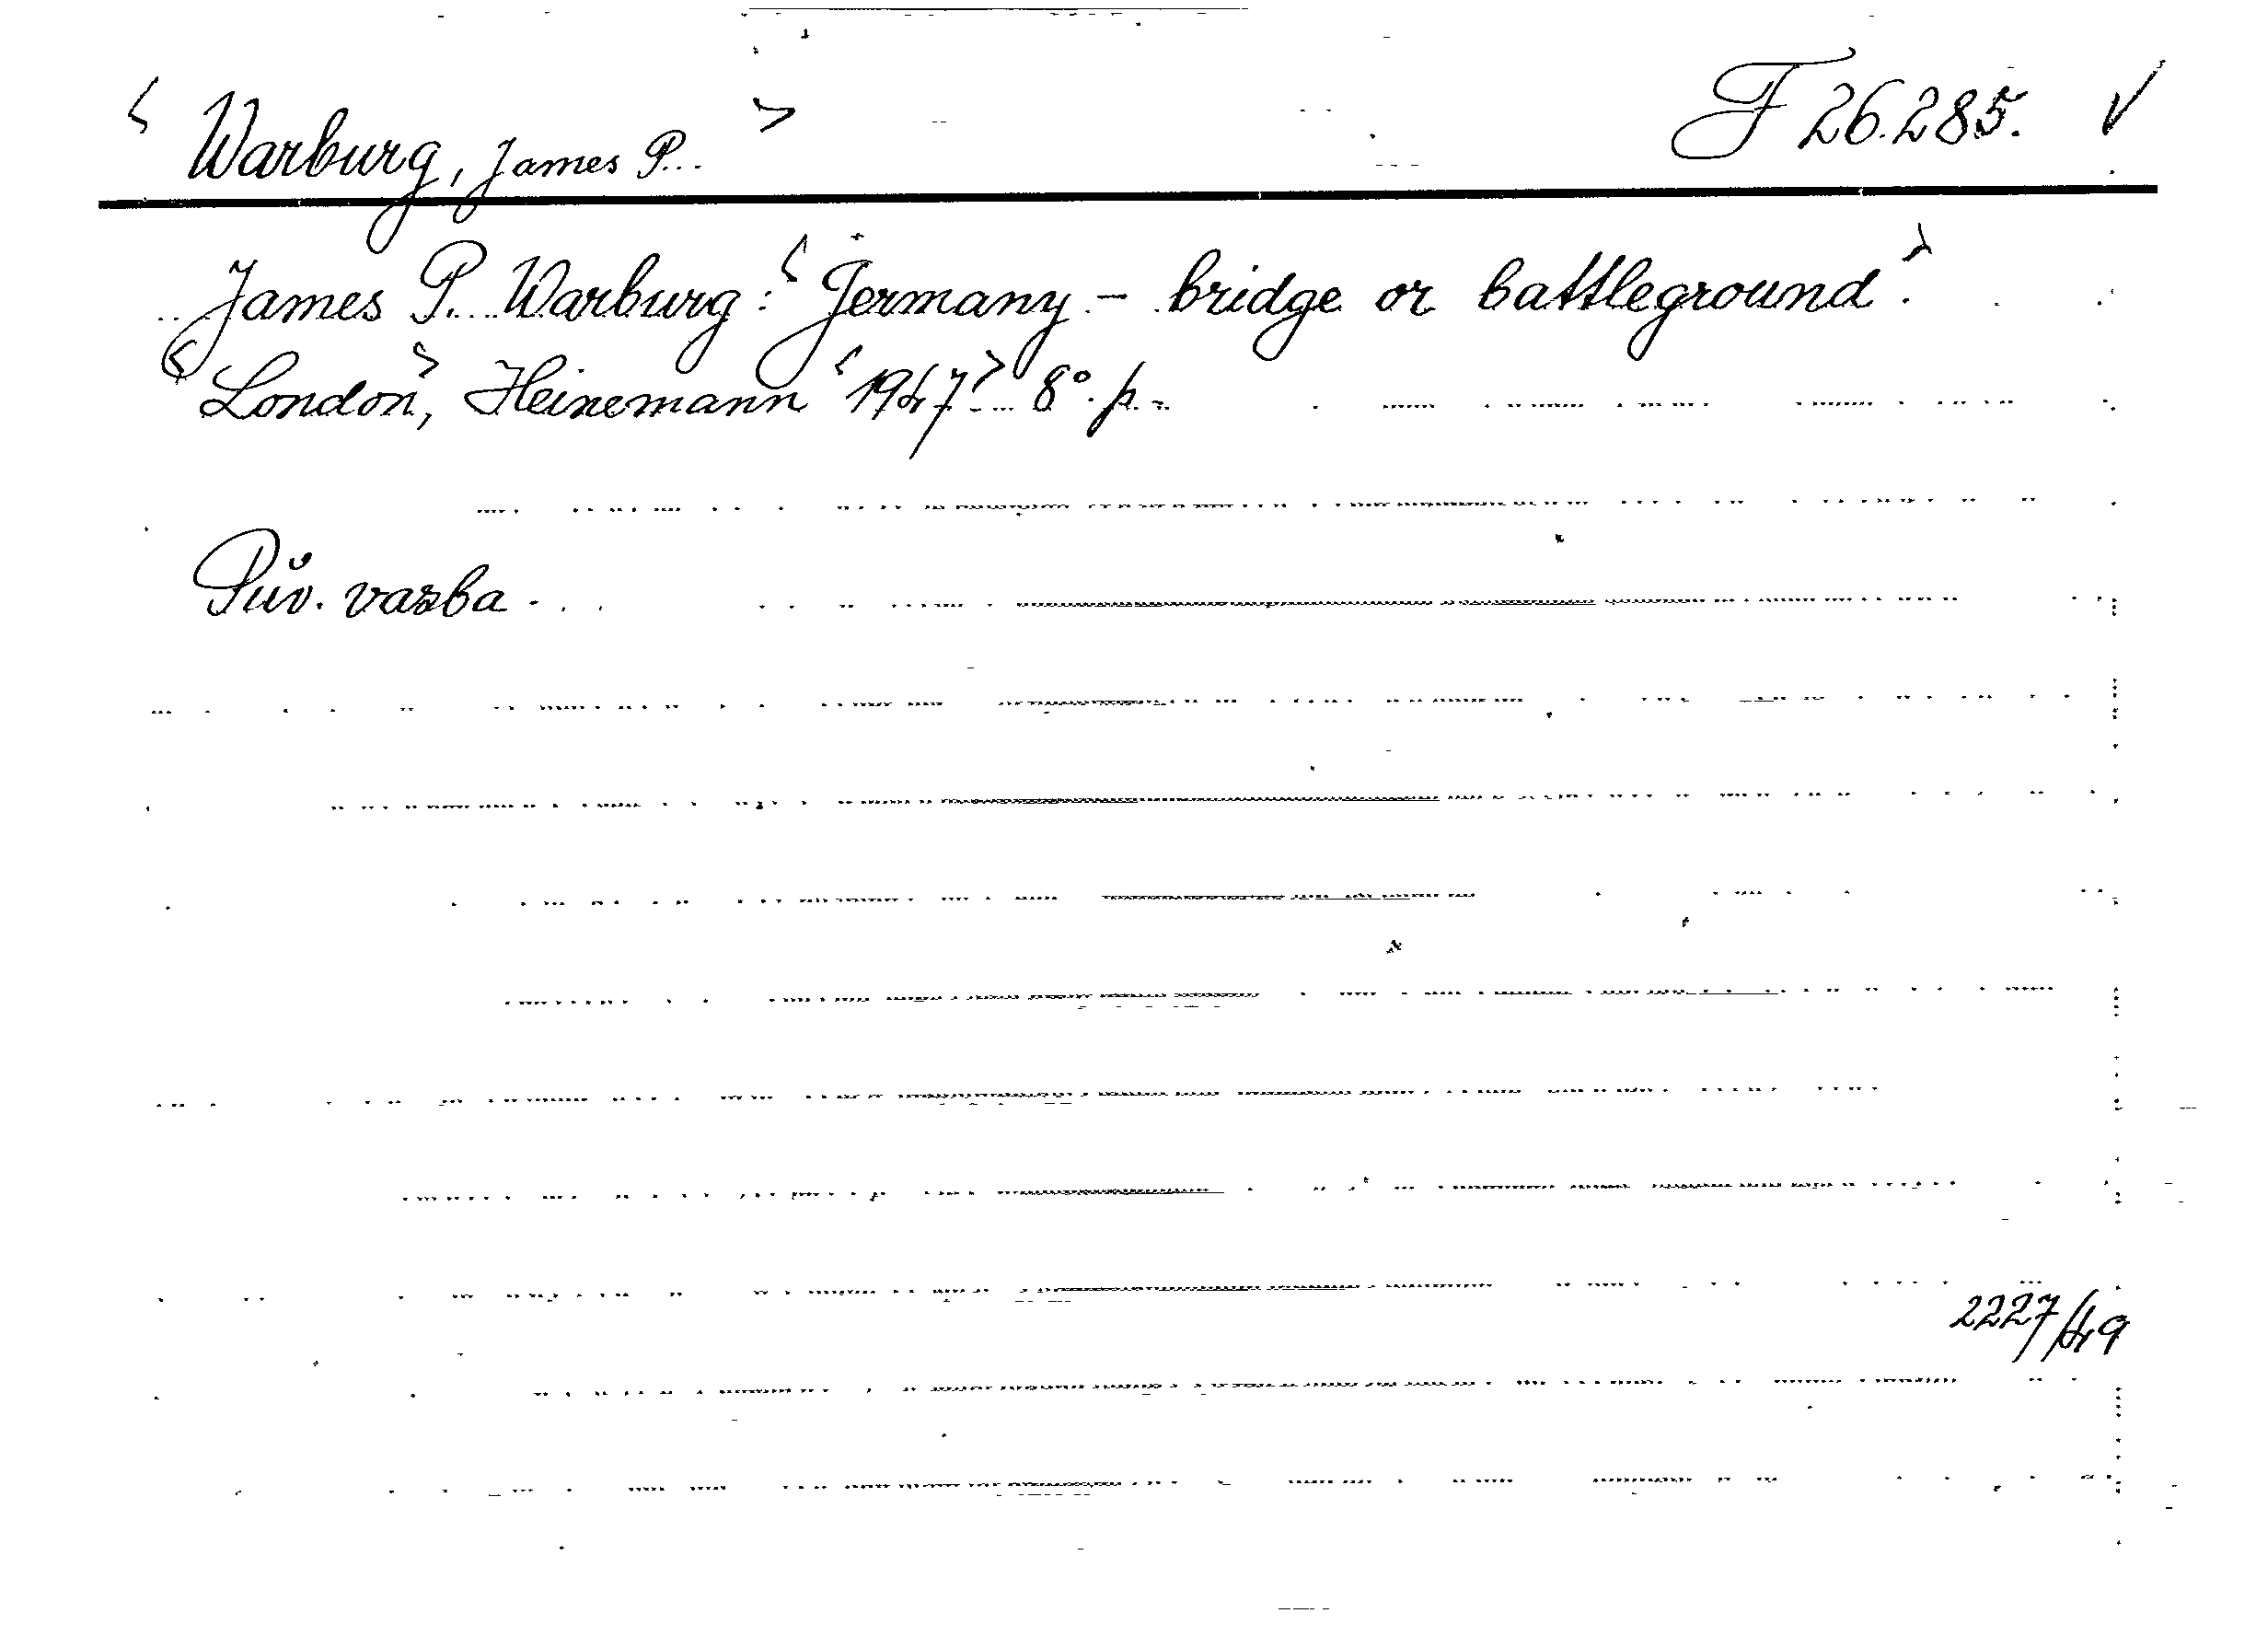 < Warburg, James P. > F 26.285. ✓
James P. Warburg: <Germany - bridge or battleground>.
<London>, Heinemann <1947>. 8°. p.-
Pův. vazba.
2227/49